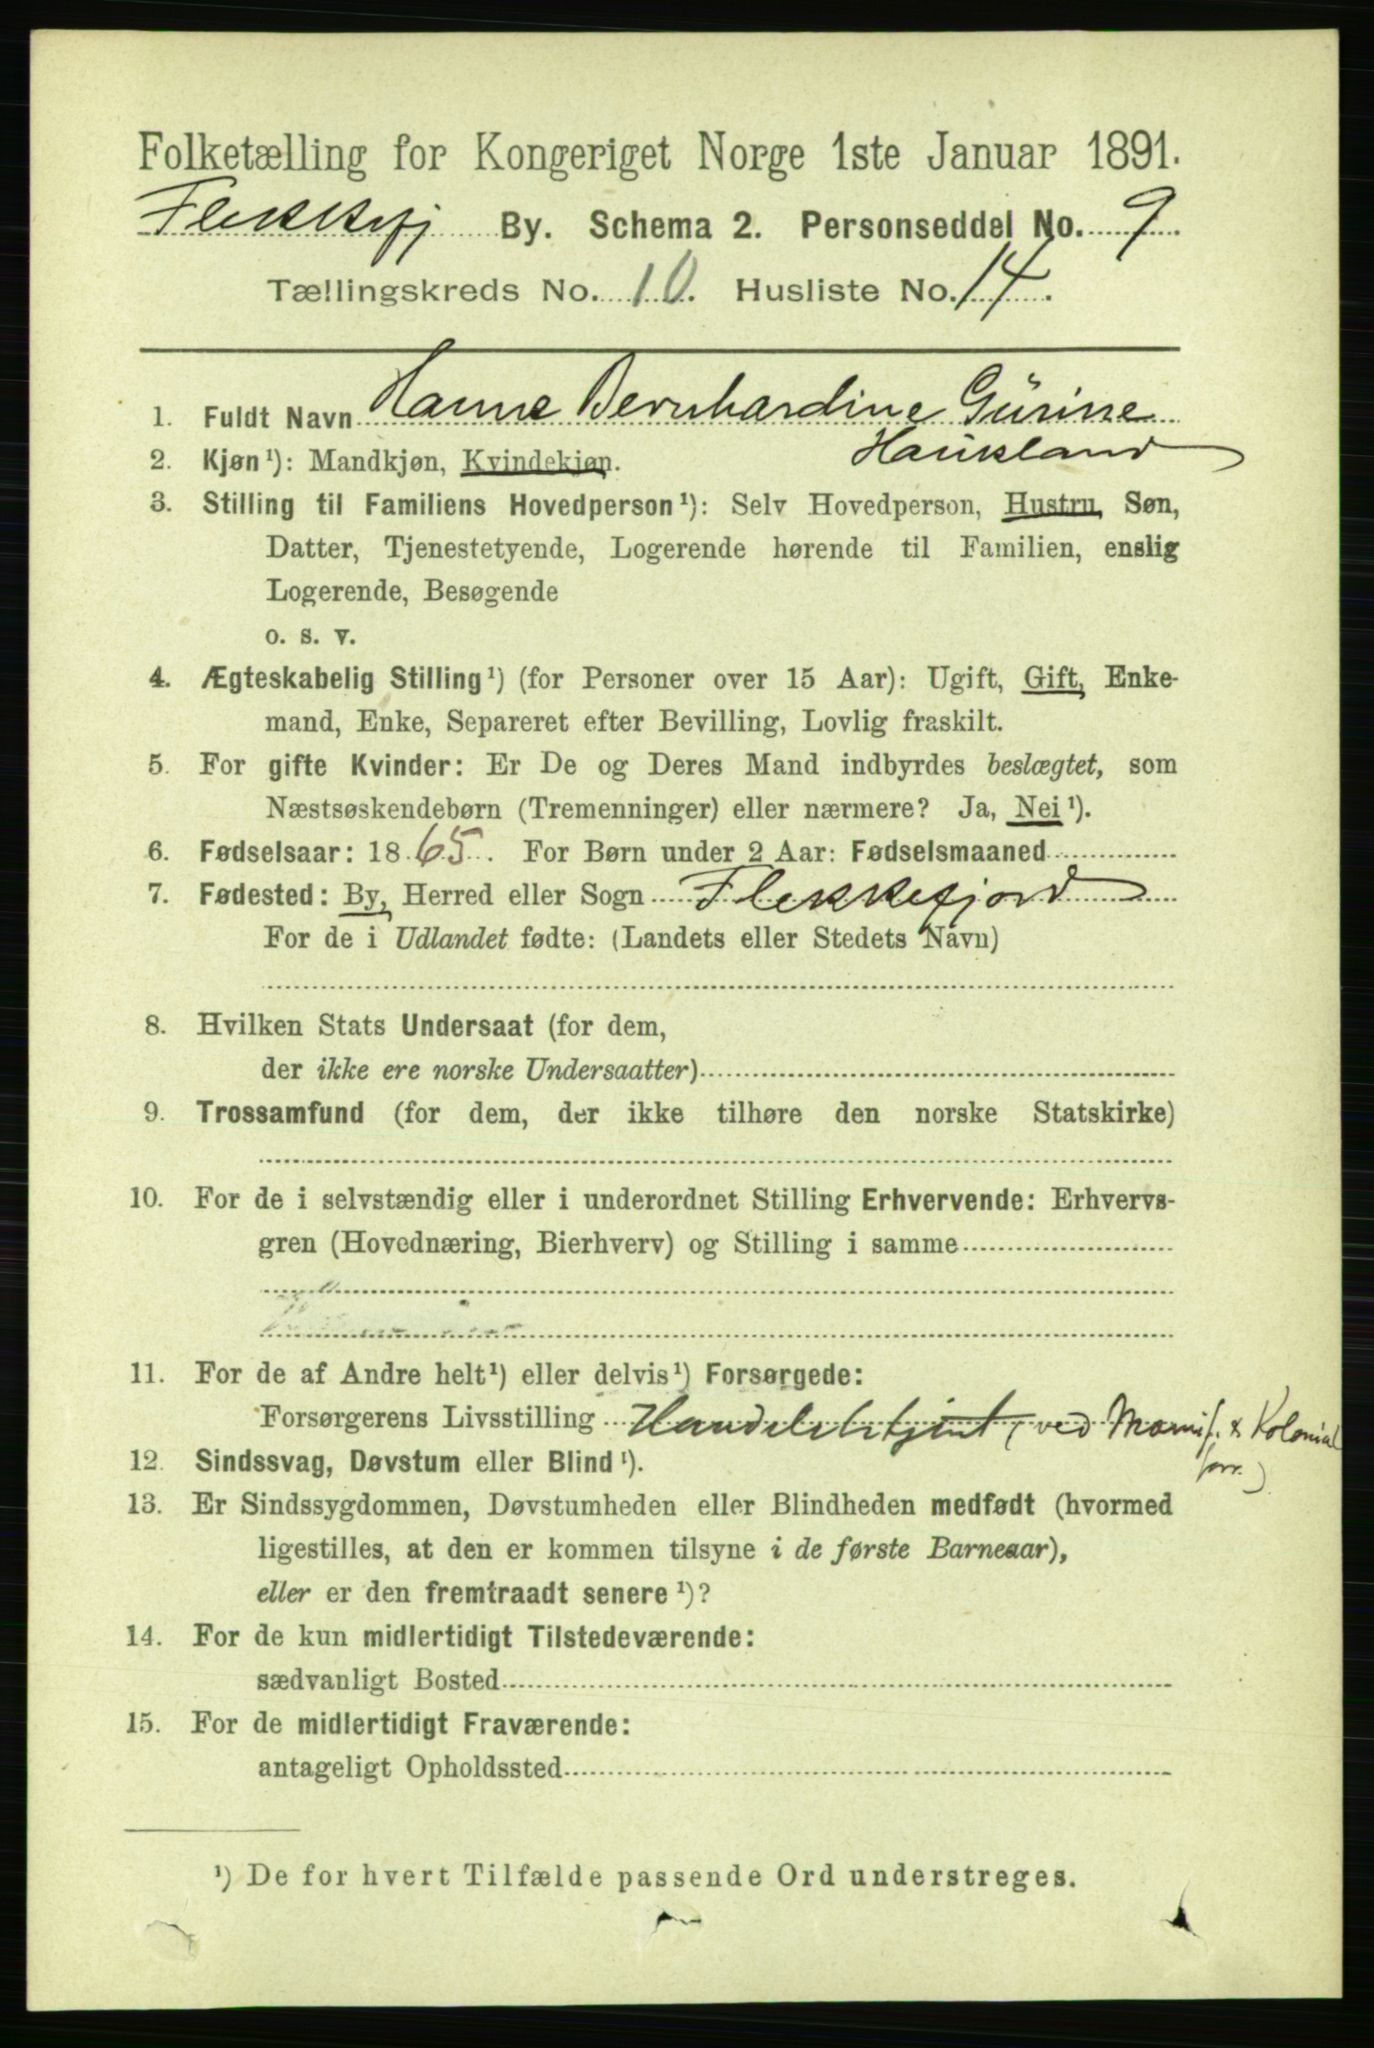 Folketælling for Kongeriget Norge 1ste Januar 1891.
Flekkefj By. Schema 2. Personseddel No. 9
Tællingskreds No. 10. Husliste No. 14.
1. Fuldt Navn Hanne Bernhardine Gurine
Haukland
2. Kjøn¹): Mandkjøn, Kvindekjøn.
3. Stilling til Familiens Hovedperson¹): Selv Hovedperson, Hustru, Søn,
Datter, Tjenestetyende, Logerende hørende til Familien, enslig
Logerende, Besøgende
o. s. v.
4. Ægteskabelig Stilling¹) (for Personer over 15 Aar): Ugift, Gift, Enke-
mand, Enke, Separeret efter Bevilling, Lovlig fraskilt.
5. For gifte Kvinder: Er De og Deres Mand indbyrdes beslægtet, som
Næstsøskendebørn (Tremenninger) eller nærmere? Ja, Nei¹).
6. Fødselsaar: 1865. For Børn under 2 Aar: Fødselsmaaned
7. Fødested: By, Herred eller Sogn Flekkefjord
For de i Udlandet fødte: (Landets eller Stedets Navn)
8. Hvilken Stats Undersaat (for dem,
der ikke ere norske Undersaatter)
9. Trossamfund (for dem, der ikke tilhøre den norske Statskirke)
10. For de i selvstændig eller i underordnet Stilling Erhvervende: Erhvervs-
gren (Hovednæring, Bierhverv) og Stilling i samme
11. For de af Andre helt¹) eller delvis¹) Forsørgede:
Forsørgerens Livsstilling Handelsbetjent (ved Manuf. & Kolonial
forr.)
12. Sindssvag, Døvstum eller Blind¹).
13. Er Sindssygdommen, Døvstumheden eller Blindheden medfødt (hvormed
ligestilles, at den er kommen tilsyne i de første Barneaar),
eller er den fremtraadt senere¹)?
14. For de kun midlertidigt Tilstedeværende:
sædvanligt Bosted
15. For de midlertidigt Fraværende:
antageligt Opholdssted
¹) De for hvert Tilfælde passende Ord understreges.